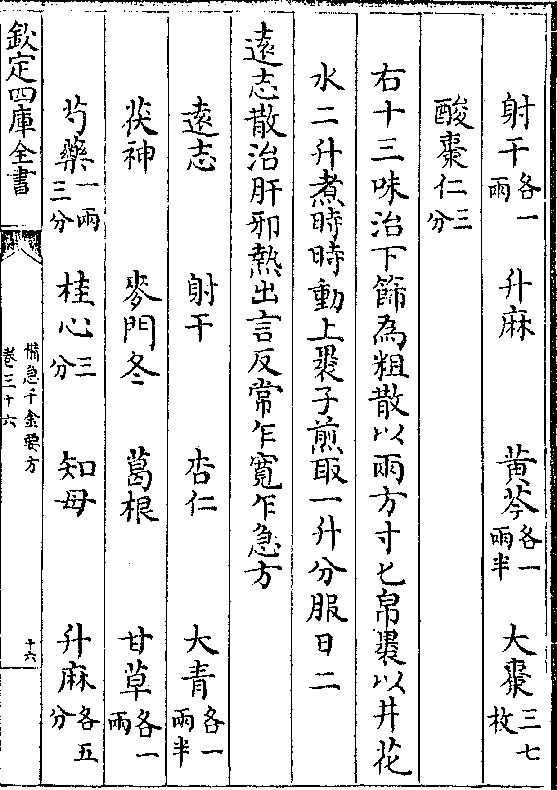 射干各一兩 升麻 黄芩各一兩半 大棗三七枚
酸棗仁三分
右十三味治下篩為粗散以兩方寸匕帛裹以井花
水二升煮時時動上裹子煎取一升分服日二
逺志散治肝邪熱出言反常乍寛乍急方
逺志 射干 杏仁 大青各一兩半
茯神 麥門冬 葛根 甘草各一兩
芍藥一兩三分 桂心三分 知母 升麻各五分
欽定四庫全書
備急千金要方
卷三十六
十六